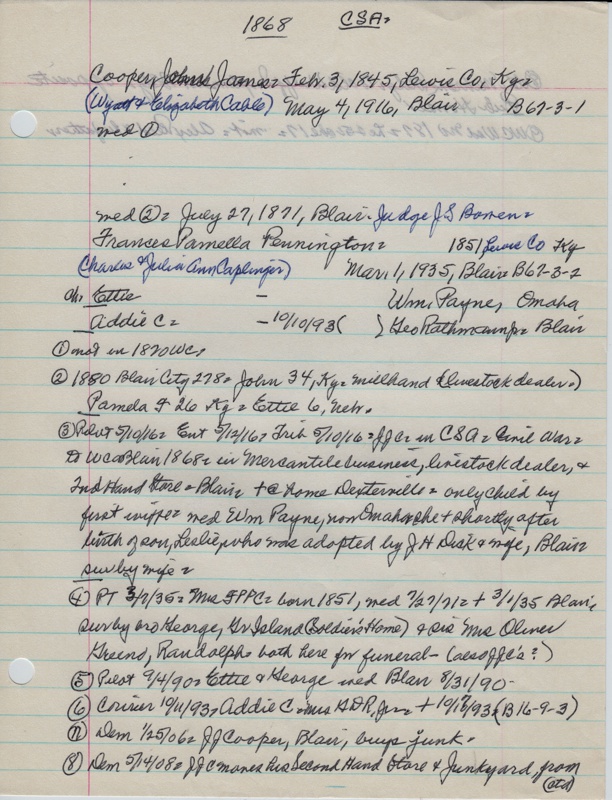 1868 CSA=
Cooper, James= Feb. 3, 1845, Lewis Co, Ky=
(Wyatt & Elizabeth Cable) May 4, 1916, Blair B67-3-1
med ①
med ②= July 27, 1871, Blair= Judge J S Bowen=
Frances Pamella Pennington= 1851 Lewis Co Ky
(Charles & Julia Ann Caplinger) Mar. 1, 1935, Blair= B67-3-2
ch: Ettie — Wm. Payne, Omaha
Addie C= - 10/10/93 ( ) Geo Blair
① not in 1870 WC;
② 1880 Blair City 278= John 34, Ky= millhand & livestock dealer=)
Pamela F 26 Ky= Ettie 6, Neb.
③ Pilot 5/10/16= Ent 5/12/16= Trib 5/10/16= JJC= in CSA= Civil War=
to WC Blair 1868= in Mercantile business, livestock dealer, &
2nd Hand Store= Blair= + @ home Dexterville= only child by
first wife= med Wm Payne, now Omaha= she + shortly after
birth of son, Leslie, who was adopted by J H Dick & wife, Blair=
surv by wife=
④ PT 3/7/35= Mrs FPPC= born 1851, med 7/27/71= + 3/1/35 Blair,
surv by bro George, Gr Island (Soldier's Home) & sis Mrs Oliver
Randolph= both here for funeral— (also JJC's?)
⑤ Pilot 9/4/90= Ettie & George med Blair 8/31/90-
⑥ Courier 10/11/93= Addie C= Mrs + 10/ /93= (B16-9-3)
⑦ Dem 1/25/06= JJ Cooper, Blair, buys junk.
⑧ Dem 5/14/08= JJC moves his Second Hand Store & Junkyard, from
(ctd)